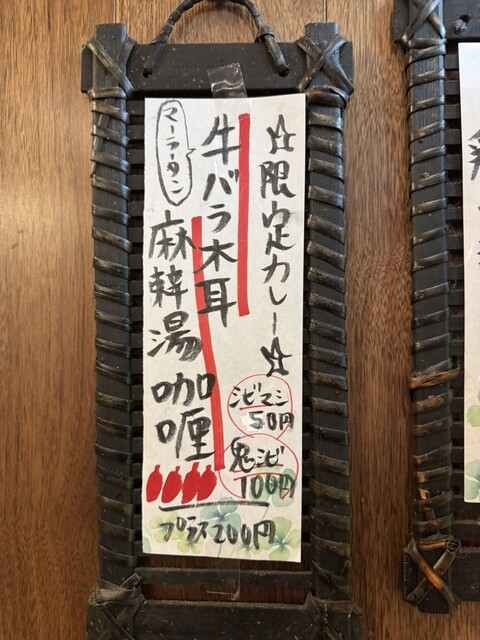 ☆限定カレー☆
牛バラ木耳
マーラータン
麻辣湯咖喱
シビマシ
50円
鬼シビ
100円
プラス200円